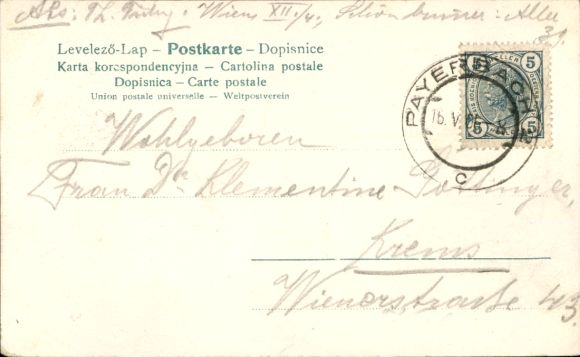 Abs: Th. Wien XII/4, Schönbrunner-Allee
31.
Levelező-Lap – Postkarte – Dopisnice
Karta korespondencyjna – Cartolina postale
Dopisnica – Carte postale
Union postale universelle – Weltpostverein
5 5
5 5
PAYERBACH
16. V.
c
Wohlgeboren
Frau Dr Klementine Pottinger,
Krems
Wienerstrasse 43.